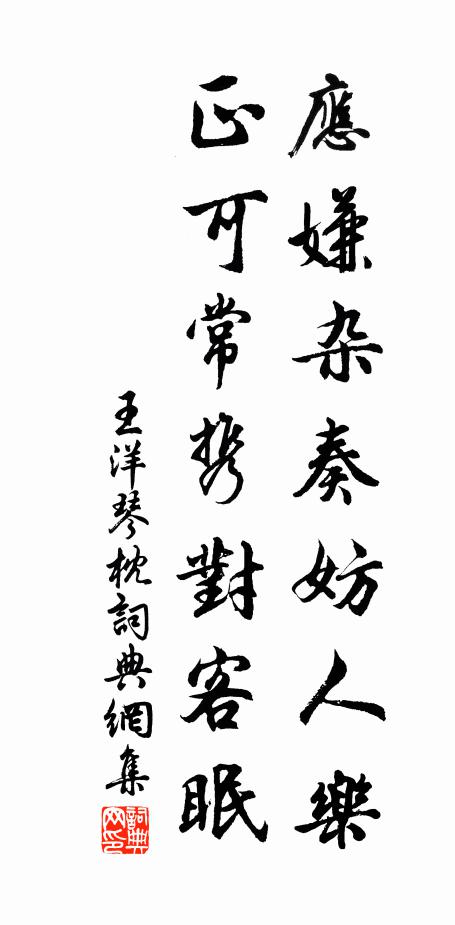 應嫌杂奏妨人樂
正可常携對客眠
王洋琴枕詞典網集
詞典網印